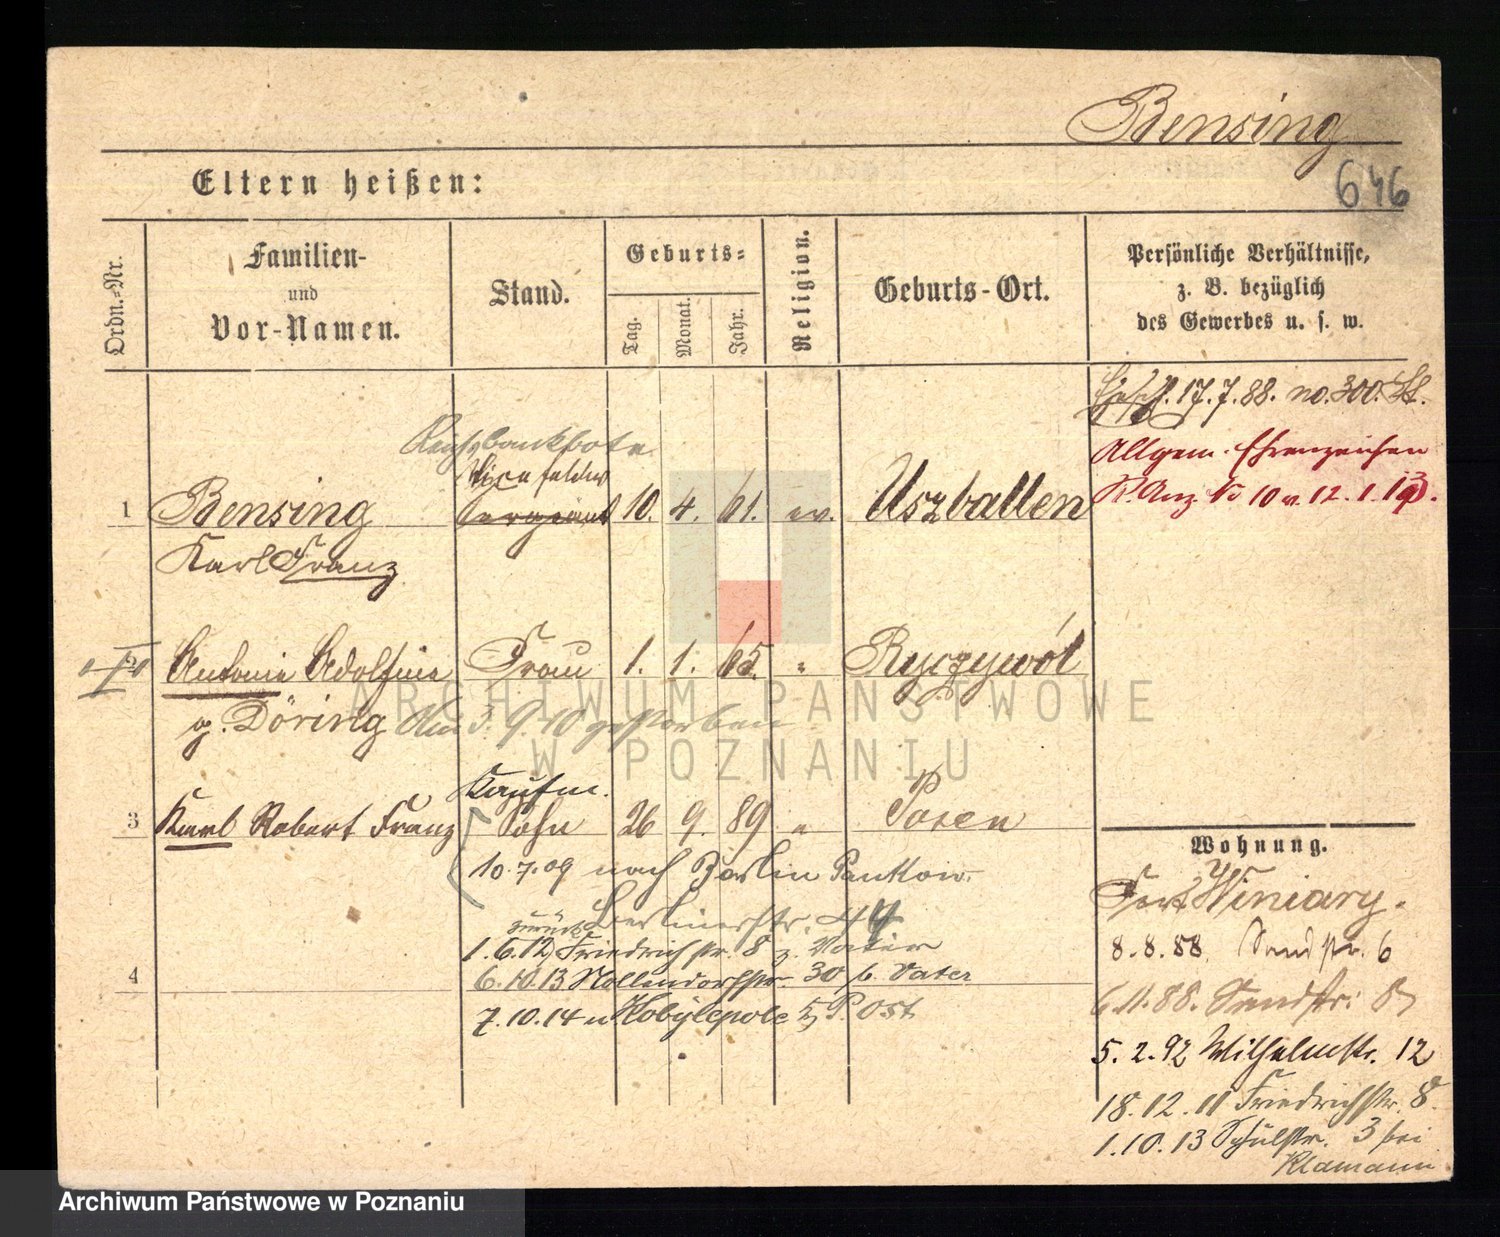 Bensing
646
Eltern heißen:
Ordn.-Nr.
Familien-
und
Vor-Namen.
Stand.
Geburts-
Tag.
Monat.
Jahr.
Religion.
Geburts-Ort.
Persönliche Verhältnisse,
z. B. bezüglich
des Gewerbes u. s. w.
17.7.88. no. 300.
Allgem. Ehrenzeichen
R. Anz No 10 v. 12. 1.
Reichsbankbote
Vicefeldw
1 Bensing Sergeant 10. 4. 61. ev. Uszballen
Karl Franz
2 Antonie Adolfine Frau 1. 1. 65. " Ryczywół
g. Döring Am 3. 9. 10 gestorben
Kaufm.
3 Karl Robert Franz Sohn 26 9. 89 " Posen
10.7.09 nach Berlin Pankow.
Berlinerstr. 44
zurück
1.6.12 Friedrichstr. 8 z. Vater
6.10.13 Nollendorfstr. 30 b. Vater
4
7.10.14 n Kobylepole P. Ost
Wohnung.
Fort Winiary.
8.8.88. Sandstr. 6
6.11.88. Sandstr. 8
5.2.92 Wilhelmstr. 12
18.12.11 Friedrichstr. 8.
1.10.13 Schulstr. 3 bei
Klamann
ARCHIWUM PAŃSTWOWE
W POZNANIU
Archiwum Państwowe w Poznaniu